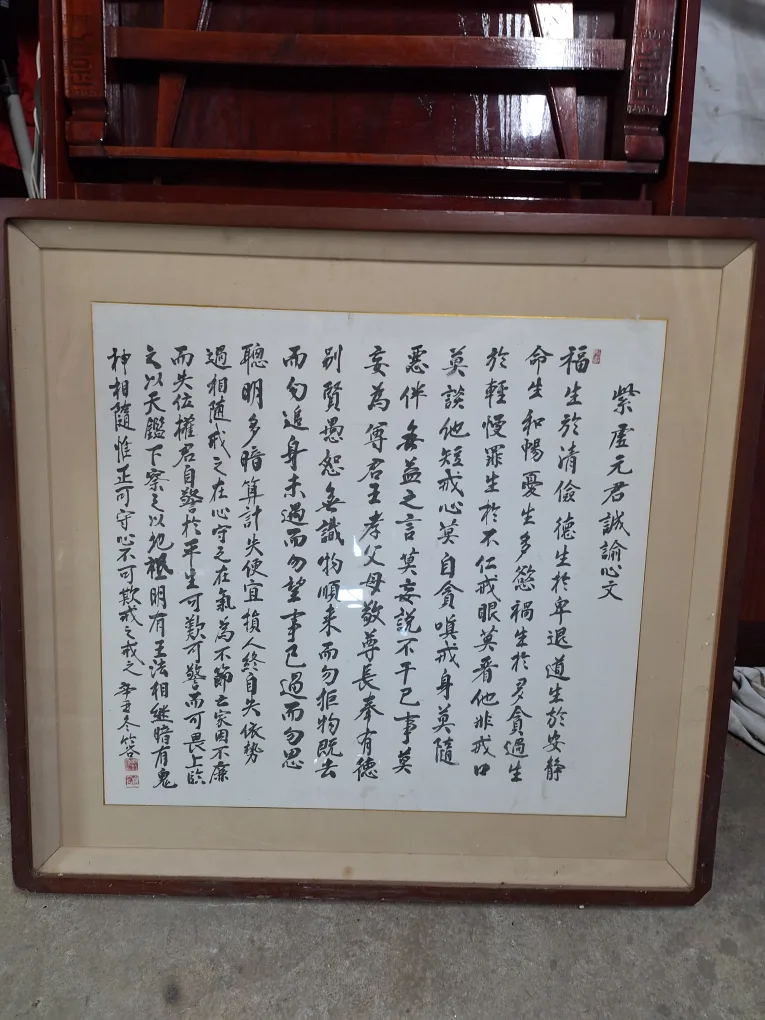 紫虛元君誡諭心文
福生於清儉德生於卑退道生於安静
命生和暢憂生多慾禍生於多貪過生
於輕慢罪生於不仁戒眼莫看他非戒口
莫談他短戒心莫自貪嗔戒身莫隨
惡伴無益之言莫妄說不干己事莫
妄為尊君王孝父母敬尊長奉有德
别賢愚恕無識物順来而勿拒物既去
而勿追身未遇而勿望事已過而勿思
聰明多暗算計失便宜損人終自失依勢
過相随戒之在心守之在氣為不節亡家因不廉
而失位權君自警於平生可歎可警而可畏上臨
之以天鑑下察之以地祇明有王法相継暗有鬼
神相隨惟正可守心不可欺戒之戒之
辛丑冬竹谷